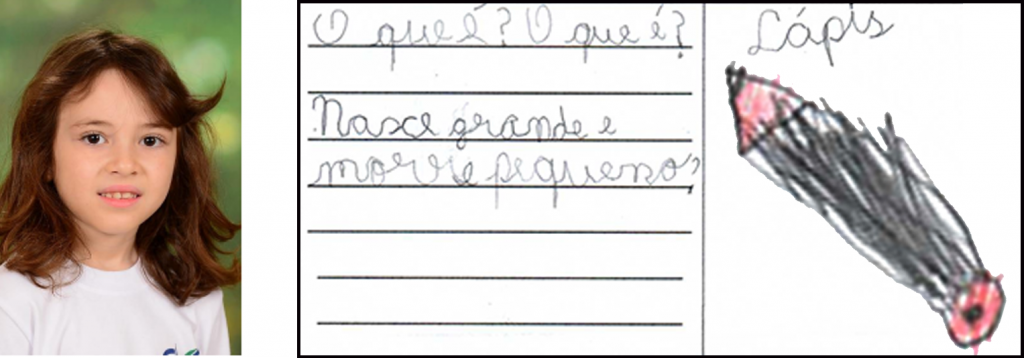 O que é? O que é?
Nasce grande e
morre pequeno?
Lápis